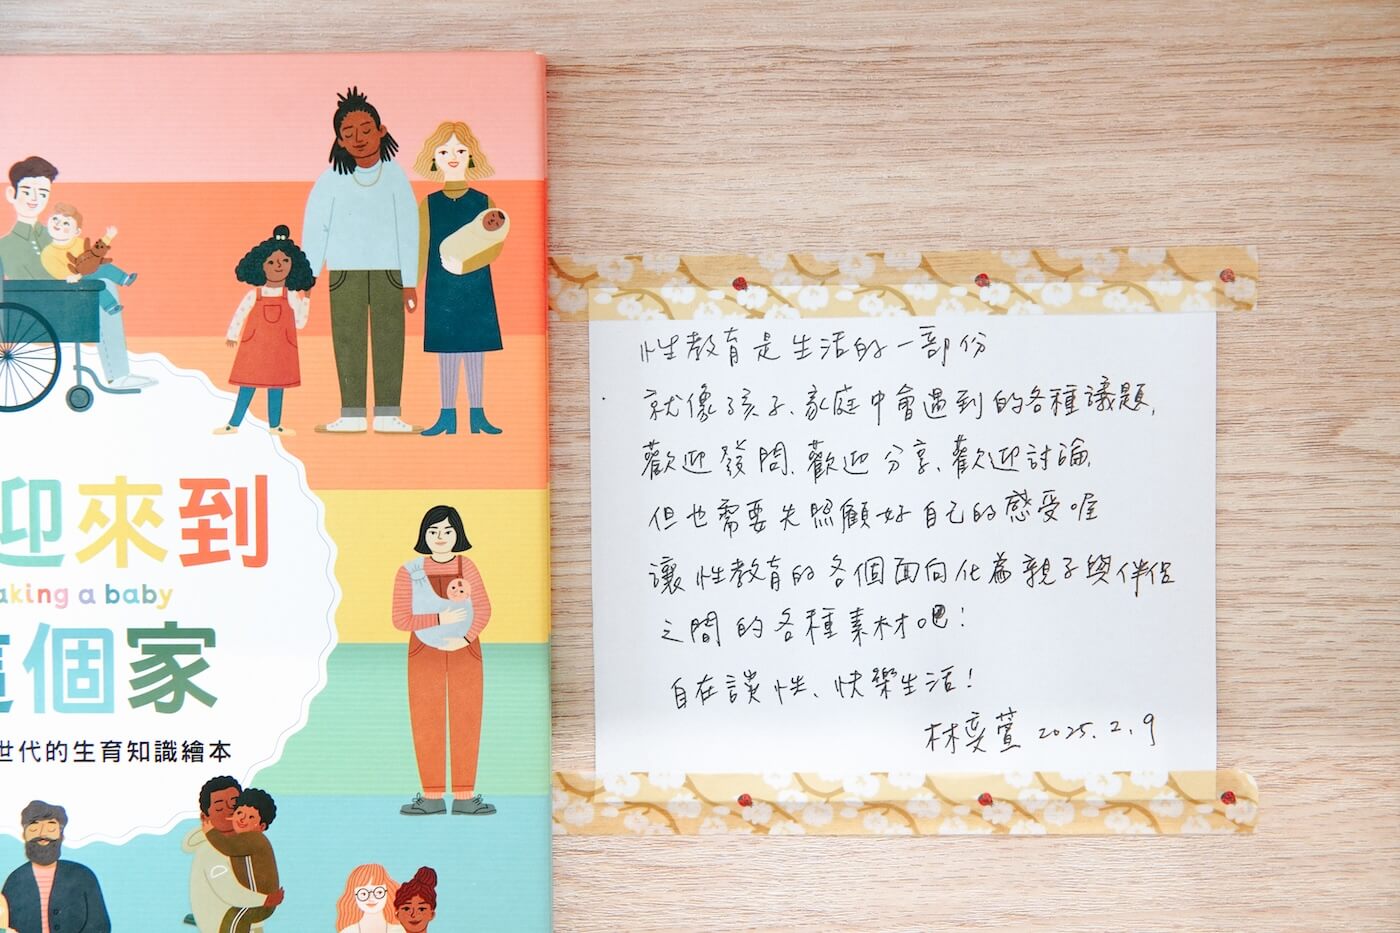 迎來到
aking a baby
這個家
世代的生育知識繪本
性教育是生活的一部份
就像孩子、家庭中會遇到的各種議題,
歡迎發問、歡迎分享、歡迎討論,
但也需要先照顧好自己的感受喔
讓性教育的各個面向化為親子與伴侶
之間的各種素材吧!
自在談性、快樂生活!
林奕萱 2025.2.9